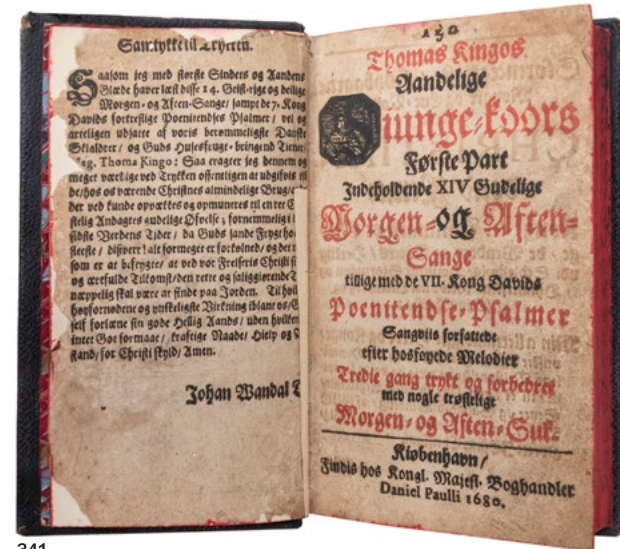 Samtykke til Trycken.
Saasom jeg med største Sinders og Aandens
Glæde haver læst disse 14. Geist-rige og deilige
Morgen- og Aften-Sange/ sampt de 7. Kong
Davids fortreflige Poenitendses Psalmer/ vel og
arteligen udsatte af voris berømmeligste Danske
Skialdrer/ og Guds Huses frugt-bringend Tiener/
Mag. Thoma Kingo: Saa eragter jeg dennem og
meget værdige ved Trykken offentligen at udgifvis til
de/ hos os værende Christnes almindelige Brug/
der ved kunde opvæktes og opmuntres til en ret
stelig Andagtes gudelige Øfvelse; fornemmelig i
sidste Verdens Tjder/ da Guds sande Frygt ho
fleeste/ disverr! alt formeget er forkolned/ og det
som er at befrygte/ at ved vor Frelseris Christi
og ærefulde Tilkomst/ den rette og saliggiørende
næppelig skal være at finde paa Jorden. Til
høyfornødene og ynskeligste Virkning iblant os/
self forlæne sin gode Hellig Aands/ uden hvilken
intet Got formaar/ kraftige Naade/ Hielp og
stand/ for Christi skyld/ Amen.
Johan Wandal
Thomas Kingos
Aandelige
Siunge-Koors
Første Part
Indeholdende XIV Gudelige
Morgen-og Aften-
Sange
tillige med de VII. Kong Davids
Poenitendse-Psalmer
Sangviis forfattede
efter hosføyede Melodier
Tredie gang trykt og forbedret
med nogle trøstelige
Morgen-og Aften-Suk.
Kiøbenhavn/
Findis hos Kongl. Majest. Boghandler
Daniel Paulli 1680.
341